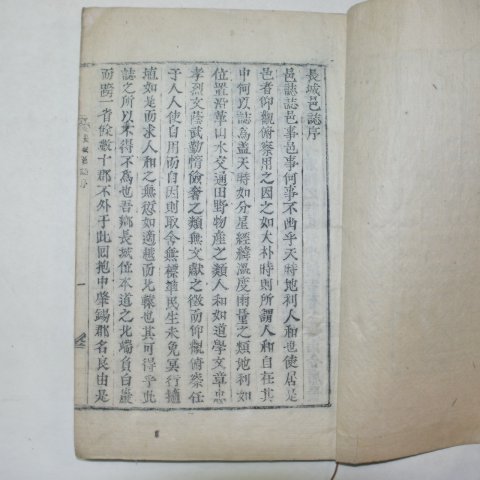 長城邑誌序
邑誌誌邑事邑事何事不乎天時地利人和也使居是
邑者仰觀俯察用之因之如大朴時則所謂人和自在其
中何以誌爲蓋天時如分星經緯溫度雨量之類地利如
位置沿革山水交通田野物產之類人和如道學文章忠
孝烈文蔭武勤惰儉奢之類無文獻之徵而仰觀俯察任
于人人使自用而自因則取舍無標準民生未免冥行擿
埴如是而求人和之無愆如適越而北轅也其可得乎此
誌之所以未得不爲也吾鄉長城位本道之北端負白巖
而跨一省餘數十郡不外于此回抱中肇錫郡名良由是
長城邑誌序
一